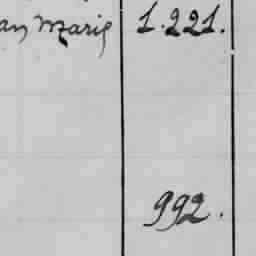 Marie 1.221.
992.